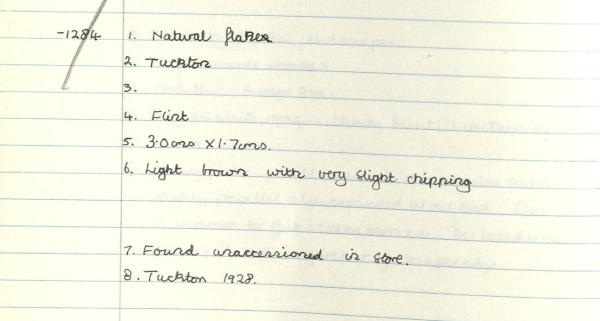 -1284 1. Natural flakes
2. Tuckton
3.
4. Flint
5. 3.0cms X 1.7cms.
6. Light brown with very slight chipping
7. Found unaccessioned in store.
8. Tuckton 1928.